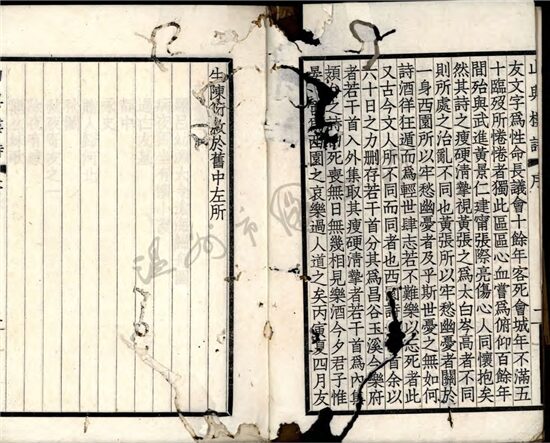 友文字爲性命長議會十餘年客死會城年不滿五
十臨歿所惓惓者獨此區區心血嘗爲俯仰百餘年
間殆與武進黃景仁建甯張際亮傷心人同懷抱矣
然其詩之瘦硬清摯視黃張之爲太白岑高者不同
則所處之治亂不同也黃張所以牢愁幽憂者關於
一身西園所以牢愁幽憂者及乎斯世憂之無如何
詩酒徉狂遁而爲輕世肆志若不難樂以忘死者此
又古今文人所不同而同者也西園詩 首余以
六十日之力删存若干首分其爲昌谷玉溪今樂府
者若干首入外集取其瘦硬清摯者若干首爲內集
死喪無日無幾相見樂酒今夕君子惟
西園之哀樂過人道之矣丙 夏四月友
生陳衍敘於舊中左所
溫州市